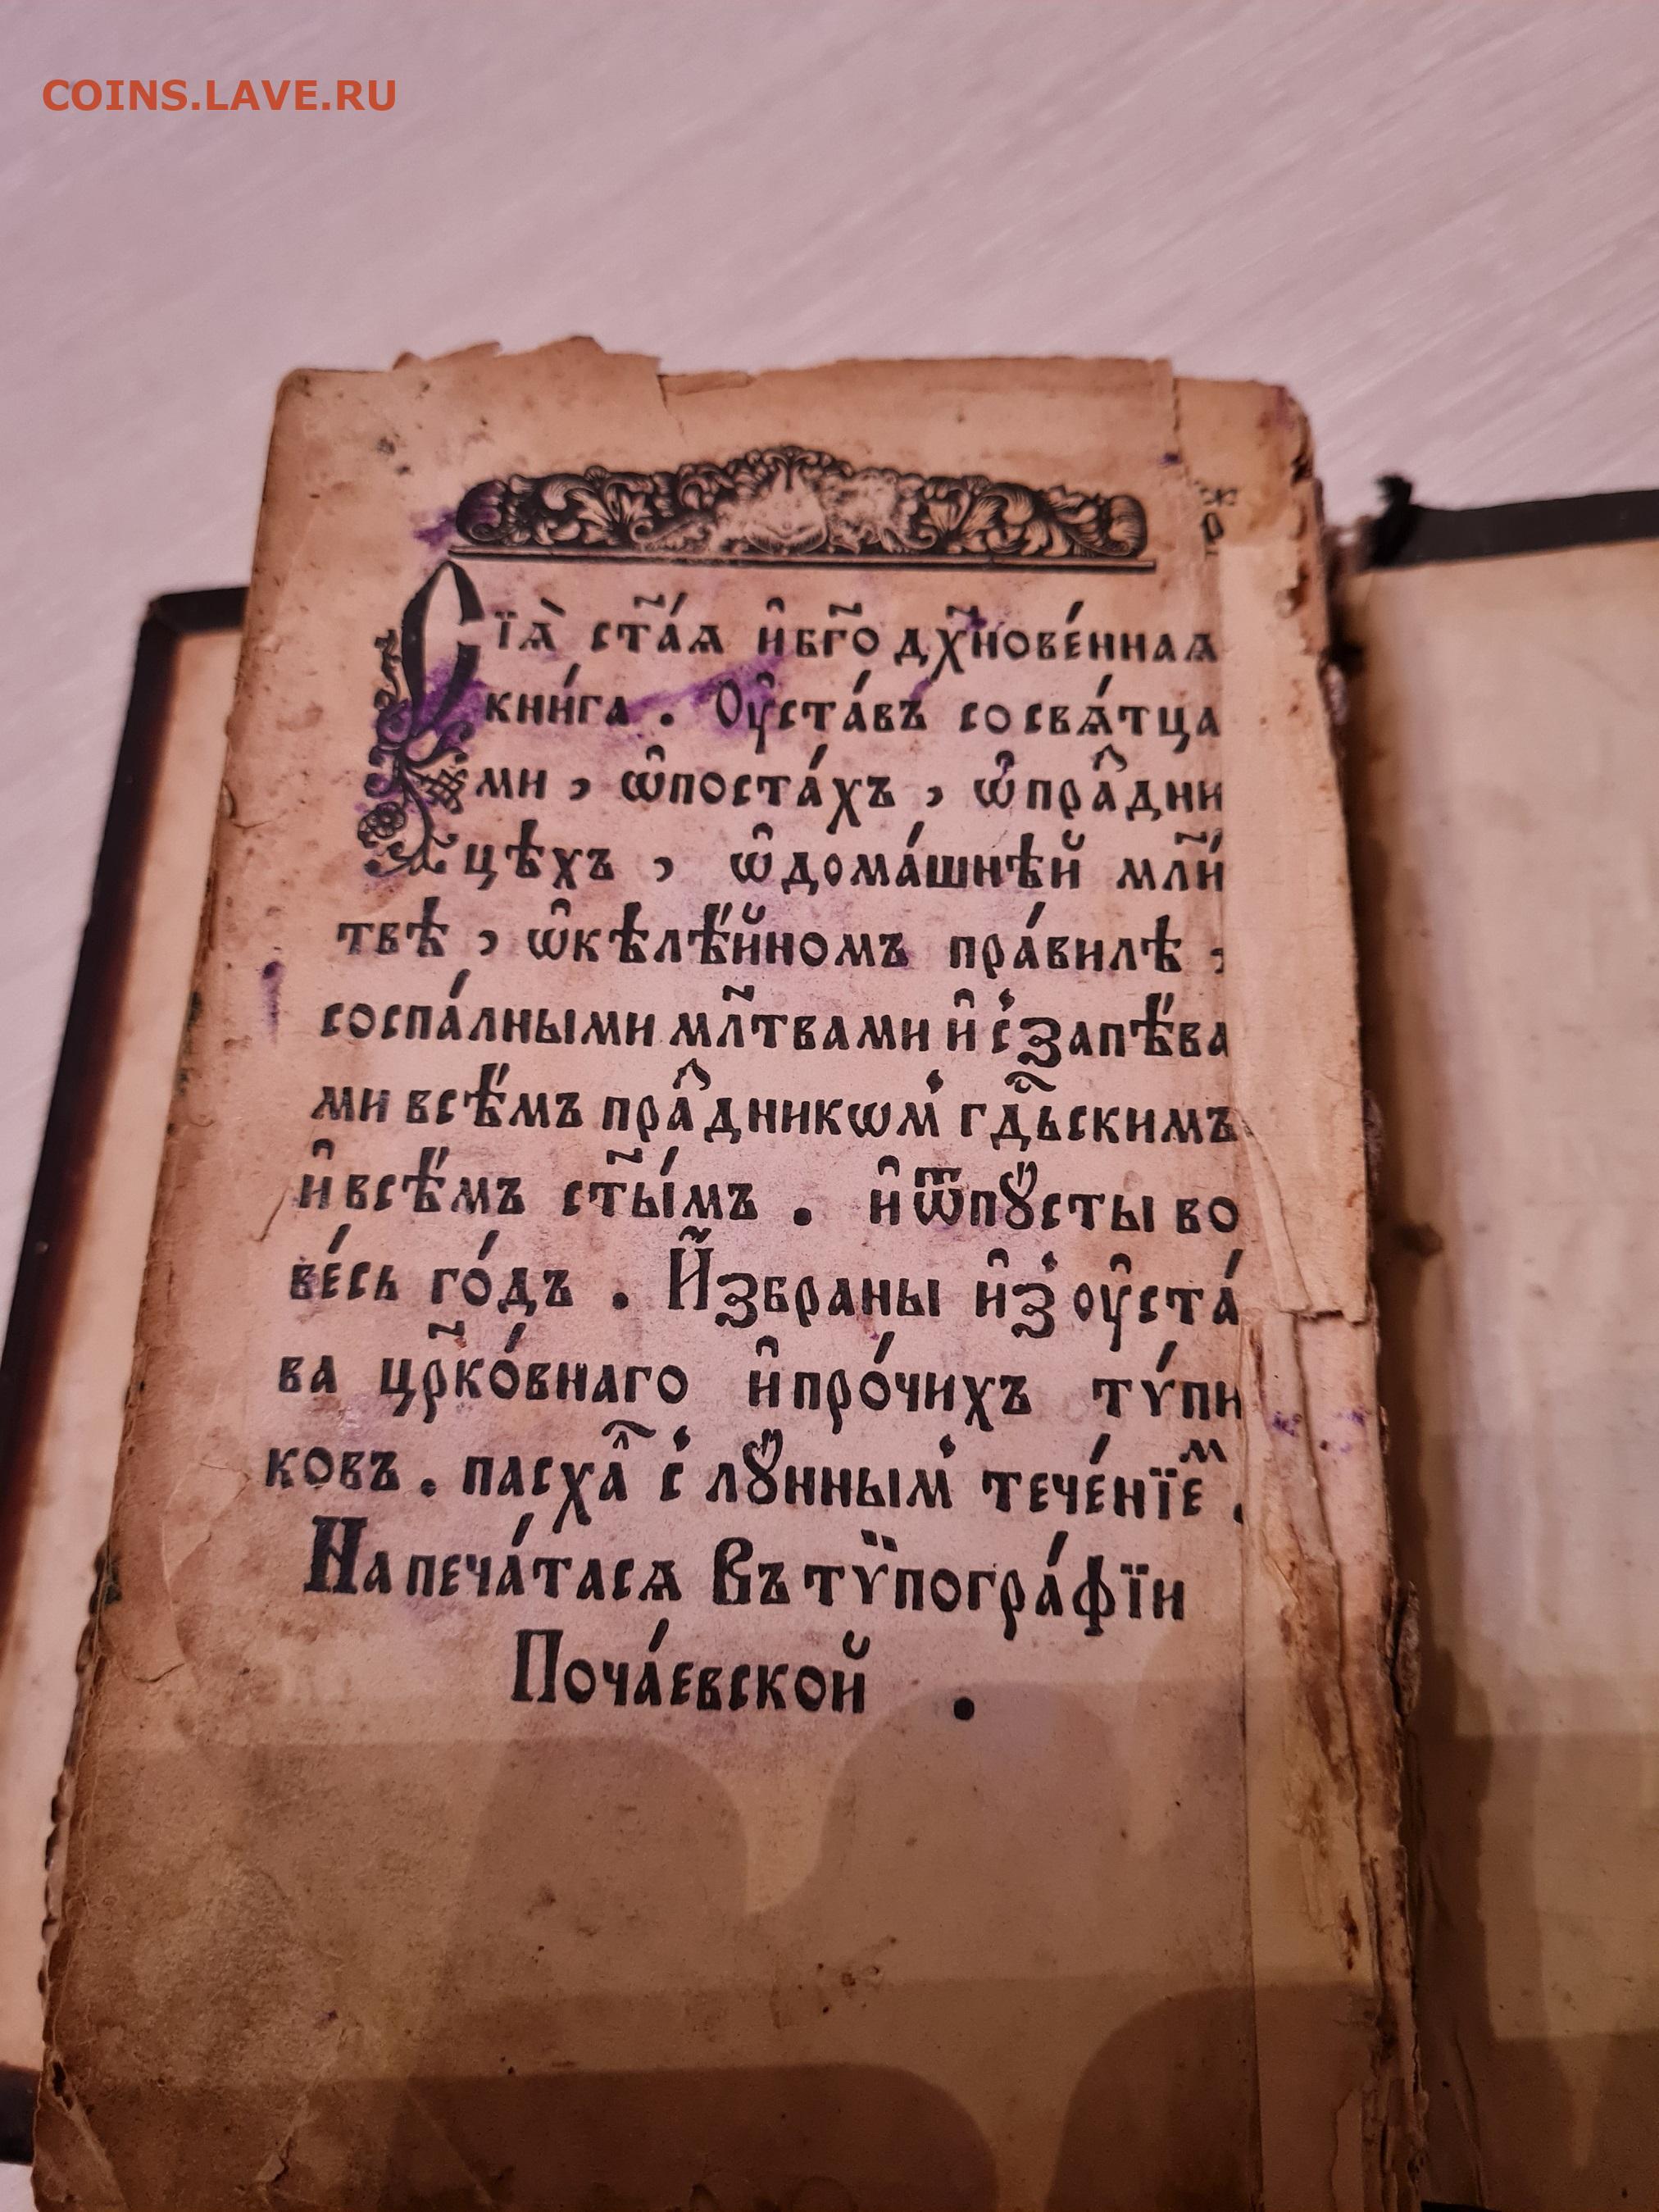 COINS.LAVE.RU
Сїѧ̀ ст҃а́ѧ и҆бг҃о дх҃нове́ннаѧ
кни́га . Оу҆ста́въ сосвѧ́тца
ми , ѡ҆поста́хъ , ѡ҆пра́ⷥдни
цѣхъ , ѡ҆дома́шнѣй мл҃и́
твѣ , ѡ҆кѣлѣ́йномъ пра́вилѣ ,
соспа́лными мл҃твами и҆ с̾запѣ́ва
ми всѣ́мъ пра́ⷥдникѡм̾ гдⷭ҇ьскимъ
и҆всѣ́мъ ст҃ы́мъ . и҆ѿпꙋ́сты во
ве́сь го́дъ . И҆збраны и҆з̾ оу҆ста́
ва цр҃ко́внаго и҆про́чихъ тѵ́пи
ковъ . пасха́лⷭ҇ с̾ лꙋ́нным̾ тече́нїеⷨ .
Напеча́тасѧ Въ тѷпогра́фїи
Поча́евской .